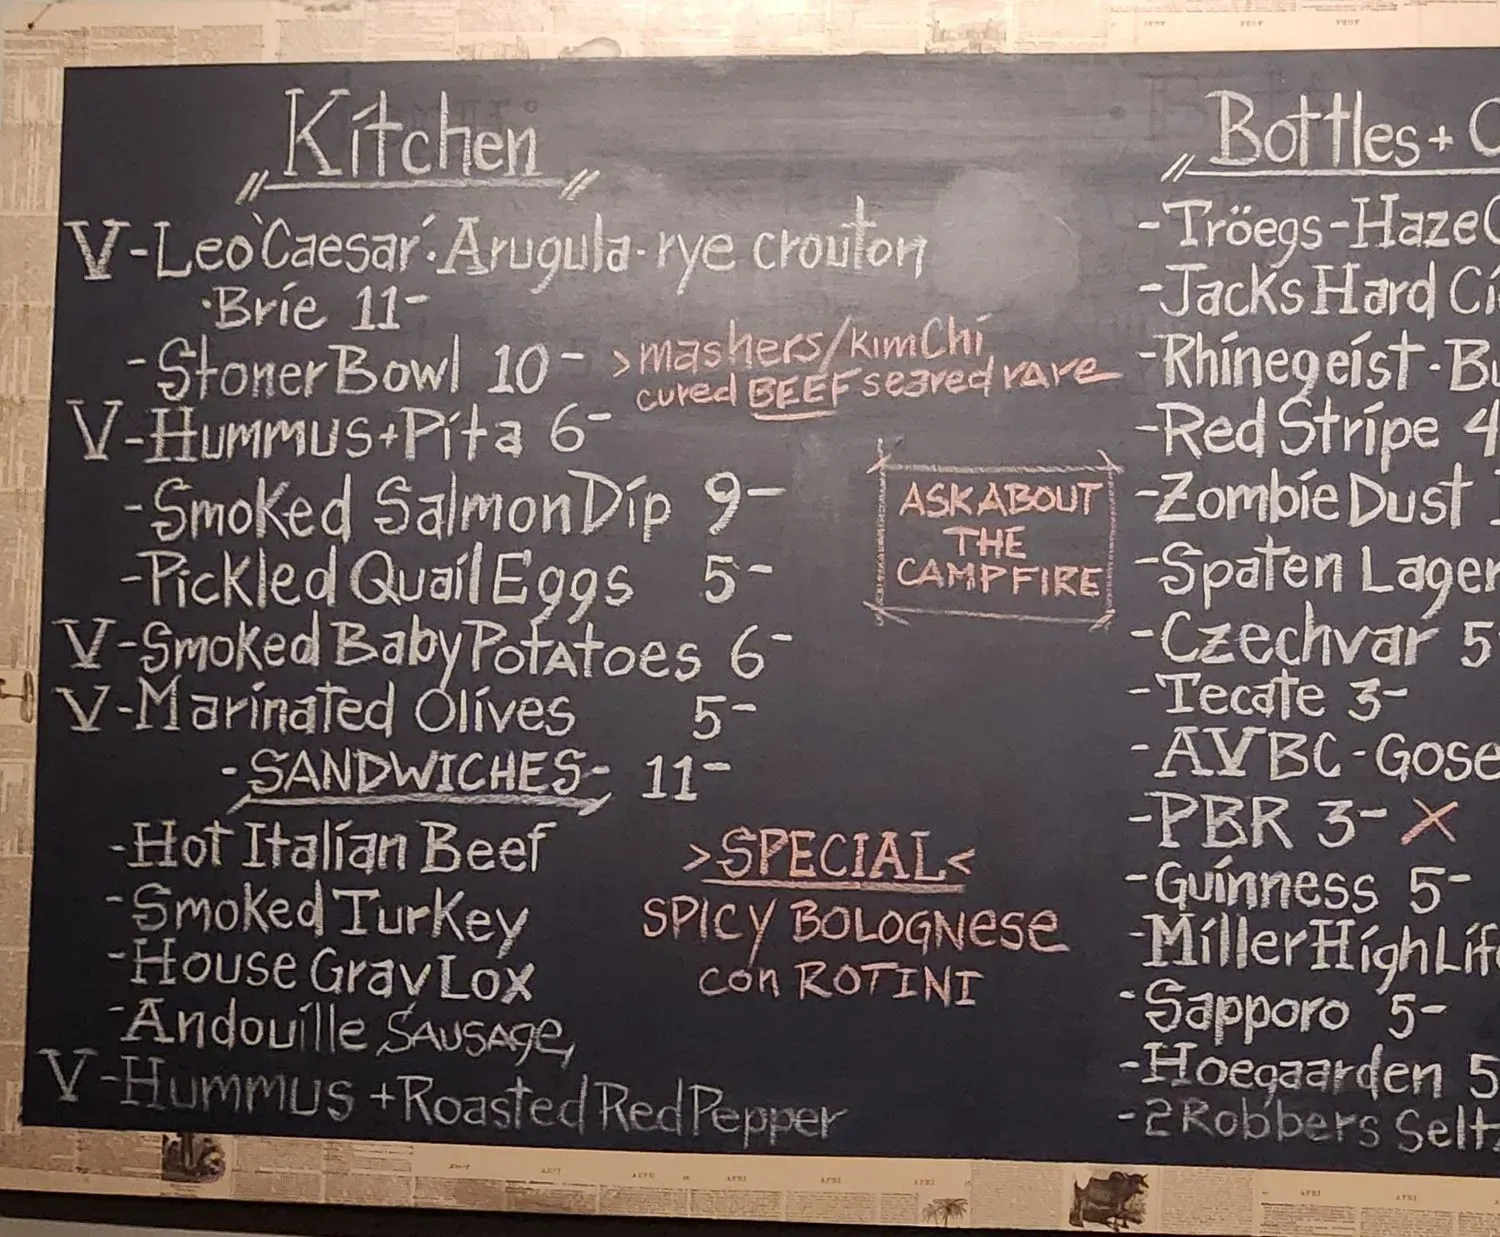 Kitchen
V-Leo 'Caesar': Arugula·rye crouton
·Brie 11-
-Stoner Bowl 10-
>mashers/kimchi
cured BEEF seared rare
V-Hummus+Pita 6-
-Smoked Salmon Dip 9-
-Pickled Quail Eggs 5-
V-Smoked Baby Potatoes 6-
V-Marinated Olives 5-
-SANDWICHES- 11-
-Hot Italian Beef
-Smoked Turkey
-House Grav Lox
-Andouille Sausage
V-Hummus +Roasted Red Pepper
ASK ABOUT
THE
CAMPFIRE
>SPECIAL<
SPICY BOLOGNESE
con ROTINI
Bottles+
-Tröegs-Haze
-Jacks Hard
-Rhinegeist-
-Red Stripe 4
-Zombie Dust
-Spaten Lager
-Czechvar 5
-Tecate 3-
-AVBC-Gose
-PBR 3- X
-Guinness 5-
-Miller High Life
-Sapporo 5-
-Hoegaarden 5
-2 Robbers Selt